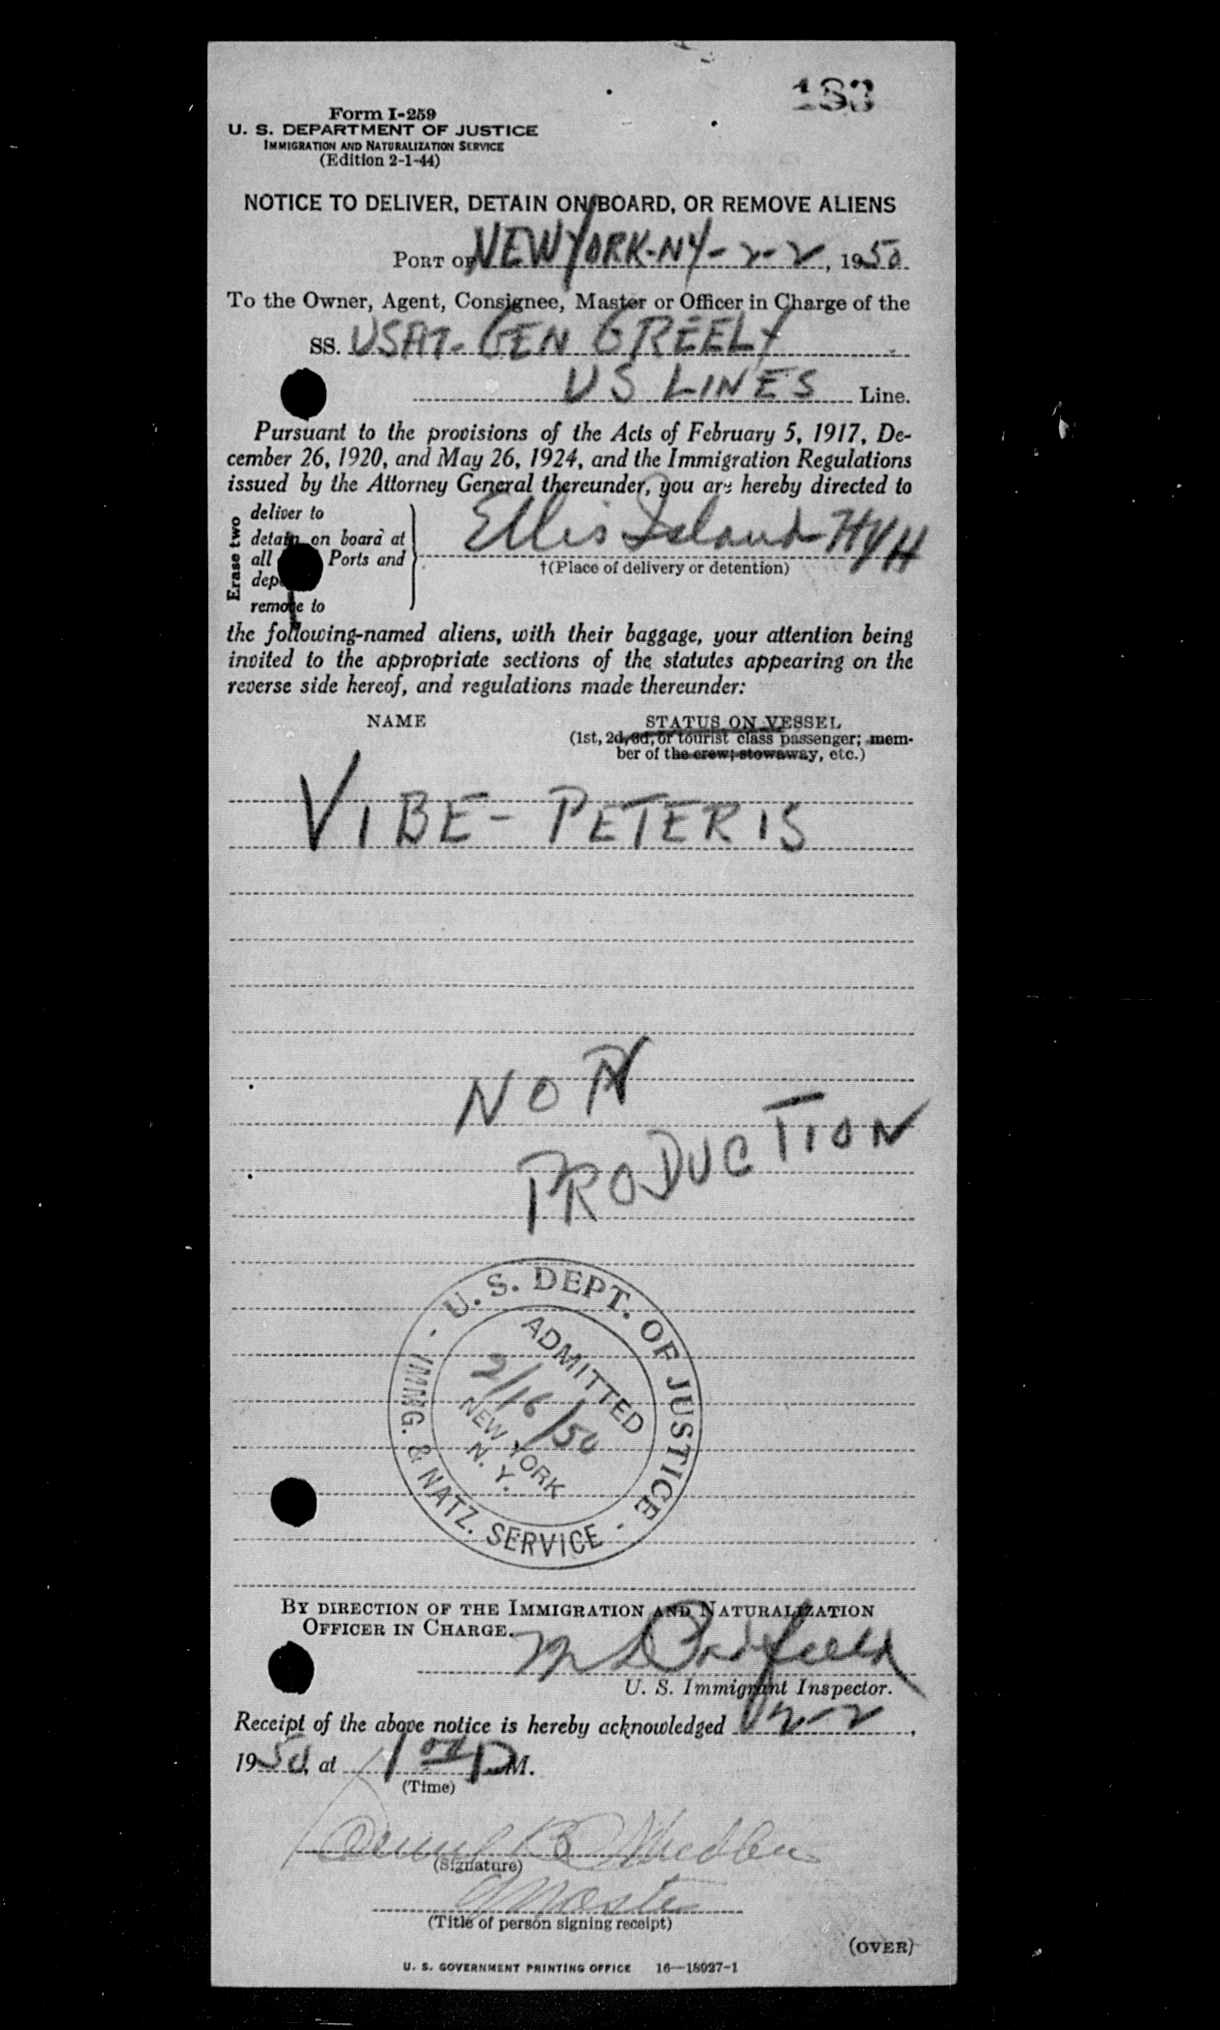 183
Form I-259
U. S. DEPARTMENT OF JUSTICE
IMMIGRATION AND NATURALIZATION SERVICE
(Edition 2-1-44)
NOTICE TO DELIVER, DETAIN ON BOARD, OR REMOVE ALIENS
PORT OF NEW YORK-NY-2-2, 1950
To the Owner, Agent, Consignee, Master or Officer in Charge of the
SS. USAT-GEN GREELY
US LINES Line.
Pursuant to the provisions of the Acts of February 5, 1917, De-
cember 26, 1920, and May 26, 1924, and the Immigration Regulations
issued by the Attorney General thereunder, you are hereby directed to
Erase two
deliver to
detain on board at
all Ports and
remove to
Ellis Island
†(Place of delivery or detention)
the following-named aliens, with their baggage, your attention being
invited to the appropriate sections of the statutes appearing on the
reverse side hereof, and regulations made thereunder:
NAME
STATUS ON VESSEL
(1st, 2d, 3d, or tourist class passenger; mem-
ber of the crew; stowaway, etc.)
VIBE-PETERIS
NON
PRODUCTION
U. S. DEPT. OF JUSTICE
IMMG. & NATZ. SERVICE
ADMITTED
2/16/50
NEW YORK
N. Y.
BY DIRECTION OF THE IMMIGRATION AND NATURALIZATION
OFFICER IN CHARGE.
U. S. Immigrant Inspector.
Receipt of the above notice is hereby acknowledged 2-2,
1950, at 1 PM.
(Time)
(Signature)
Master
(Title of person signing receipt)
(OVER)
U. S. GOVERNMENT PRINTING OFFICE 16—18027-1